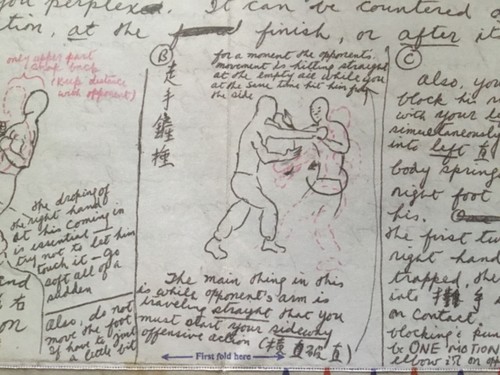 you perplexed. It can be countered a
tion, at the finish, or after it
only upper part
snap back
(Keep distance
with opponent)
the droping of
the right hand
at this coming in
is essential —
try not to let him
touch it — go
soft all of a
sudden
Also, do not
move the foot
if have to just
a little bit
end
右
on
B
走手
for a moment the opponents
movement is hitting straight
at the empty air while you
at the same time hit him from
the side
The main thing in this
is while opponent's arm is
traveling straight that you
must start your sideway
offensive action (横 直 直)
First fold here
C
Also, you
block his
with your le
simultaneously
into left 直
body spring
right foot
his.
the first tw
right hand
trapped, the
into
on contact,
blocking & pun
be ONE MOTION
elbow in on